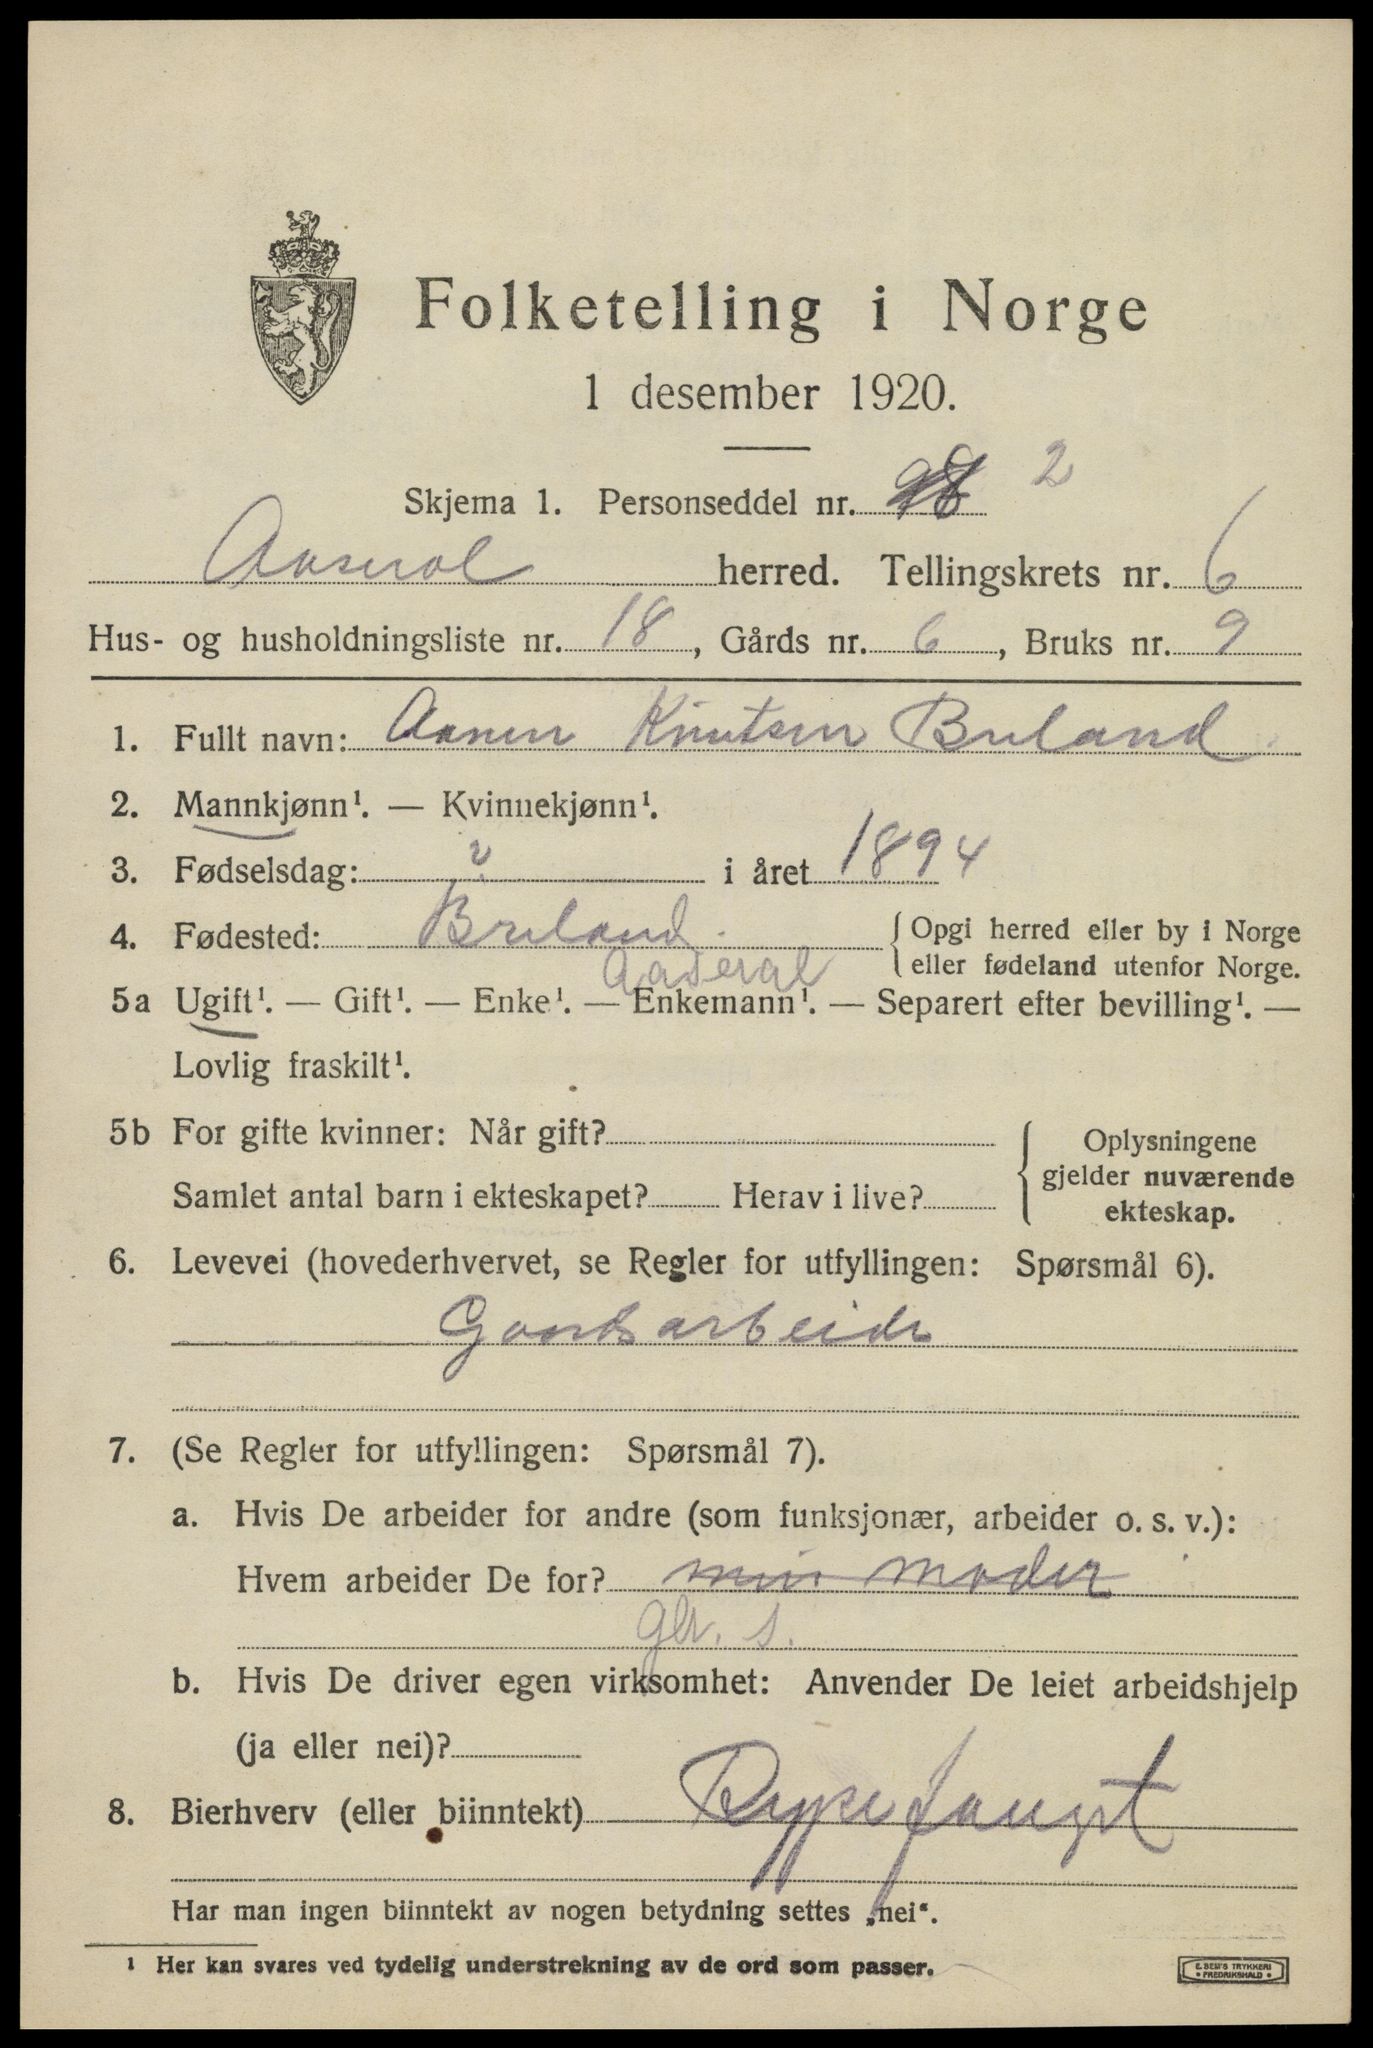 Folketelling i Norge
1 desember 1920.
Skjema 1. Personseddel nr. 2
Aaserol herred. Tellingskrets nr. 6
Hus- og husholdningsliste nr. 18, Gårds nr. 6, Bruks nr. 9
1. Fullt navn: Aanen Knutsen Breland
2. Mannkjønn¹. — Kvinnekjønn¹.
3. Fødselsdag: i året 1894
4. Fødested: Breland. { Opgi herred eller by i Norge
Aaseral eller fødeland utenfor Norge.
5a Ugift¹. — Gift¹. — Enke¹. — Enkemann¹. — Separert efter bevilling¹. —
Lovlig fraskilt¹.
5b For gifte kvinner: Når gift? Oplysningene
gjelder nuværende
Samlet antal barn i ekteskapet? Herav i live? ekteskap.
6. Levevei (hovederhvervet, se Regler for utfyllingen: Spørsmål 6).
Gaardsarbeide
7. (Se Regler for utfyllingen: Spørsmål 7).
a. Hvis De arbeider for andre (som funksjonær, arbeider o. s. v.):
Hvem arbeider De for? min moder
gbr. s.
b. Hvis De driver egen virksomhet: Anvender De leiet arbeidshjelp
(ja eller nei)?
8. Bierhverv (eller biinntekt) Rypefangst
Har man ingen biinntekt av nogen betydning settes „nei“.
¹ Her kan svares ved tydelig understrekning av de ord som passer.
E. SEM'S TRYKKERI
• FREDRIKSHALD •